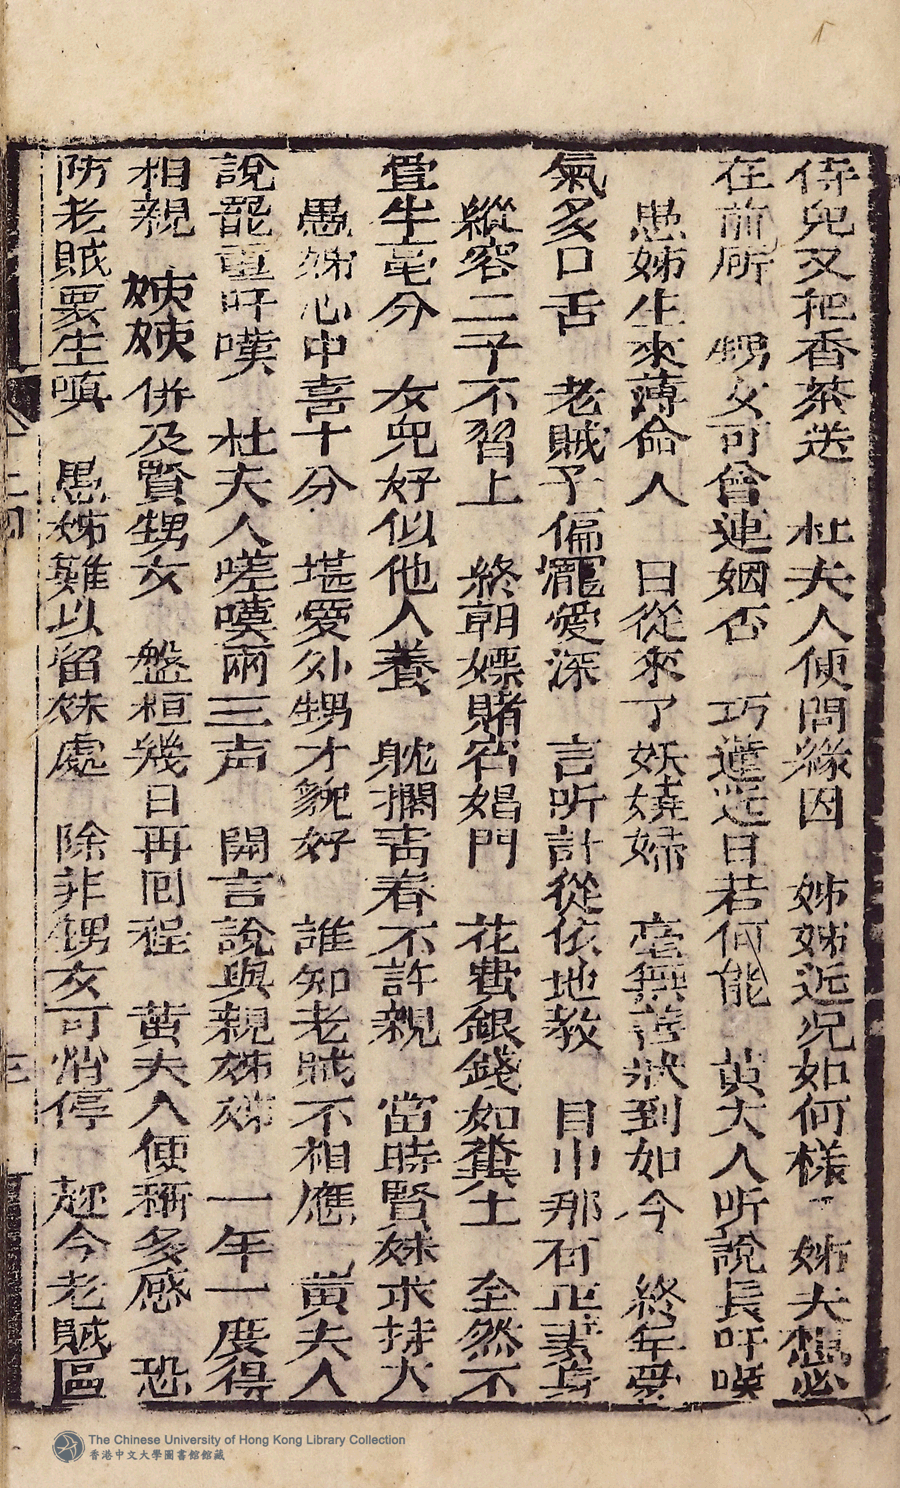 侍兒又把香茶送　杜夫人便問緣因　姊姊近况如何樣　姊夫想必
在前所　甥女可曾連姻否　巧蓮近日若何能　黃夫人听說長吁嘆
愚姊生來薄命人　日從來了妖嬈婦　毫無善狀到如今　終年受
氣多口舌　老賊予偏寵愛深　言听計從依他教　目中那有正妻身
縱容二子不習上　終朝嫖賭宿娼門　花費銀錢如糞土　全然不
疊半毫分　女兒好似他人養　躭擱青春不許親　當時賢妹求持大
愚姊心中喜十分　堪愛外甥才貌好　誰知老賊不相應　黃夫人
說罷重吁嘆　杜夫人嗟嘆兩三声　開言說與親姊姊　一年一度得
相親　姨姨併及賢甥女　盤桓幾日再囘程　黃夫人便稱多感　恐
防老賊要生嗔　愚姊難以留妹處　除非甥女可消停　趂今老賊區
三
The Chinese University of Hong Kong Library Collection
香港中文大學圖書館館藏